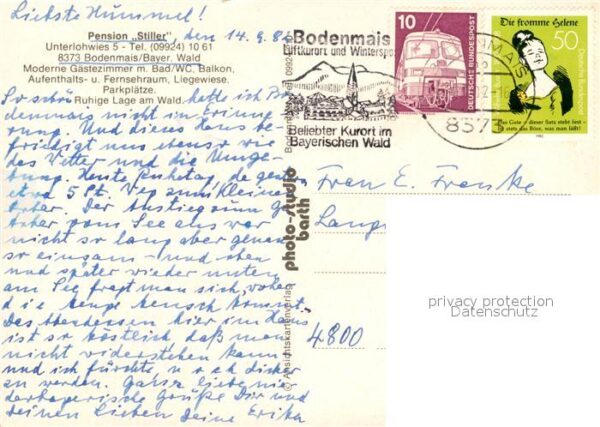 Liebste Hummel!
Pension „Stiller"
den 14.9.82
Unterlohwies 5 - Tel. (09924) 10 61
8373 Bodenmais/Bayer. Wald
Moderne Gästezimmer m. Bad/WC, Balkon,
Aufenthalts- u. Fernsehraum, Liegewiese,
Parkplätze.
Ruhige Lage am Wald.
So schön hatte ich Bo
denmais nicht in Erinne
rung. Und dieses Haus be
friedigt uns ebenso wie
das Wetter und die Umge
bung. Heute Ruhetag, da gestern
etwa 5 St. Weg zum Kleinen
Arber. Der Anstieg zum Gr.
Arber vom See aus war
nicht so lang aber genau
so einsam - und oben
und später wieder unten
am See fragt man sich, woher
die Menge Mensch kommt.
Das Abendessen hier im Haus
ist so köstlich, daß man
nicht widerstehen kann
und ich fürchte, noch dicker
zu werden. Ganz liebe nie
derbayerische Grüße Dir und
Deinen Lieben Deine Erika
© Ansichtskartenverlag
photo-studio
barth
Bodenmais
Luftkurort und Wintersport
Beliebter Kurort im
Bayerischen Wald
10
DEUTSCHE BUNDESPOST
Die fromme Helene
50
Deutsche Bundespost
Das Gute - dieser Satz steht fest -
Ist stets das Böse, was man läßt!
Frau E. Franke
Lang
4800
privacy protection
Datenschutz